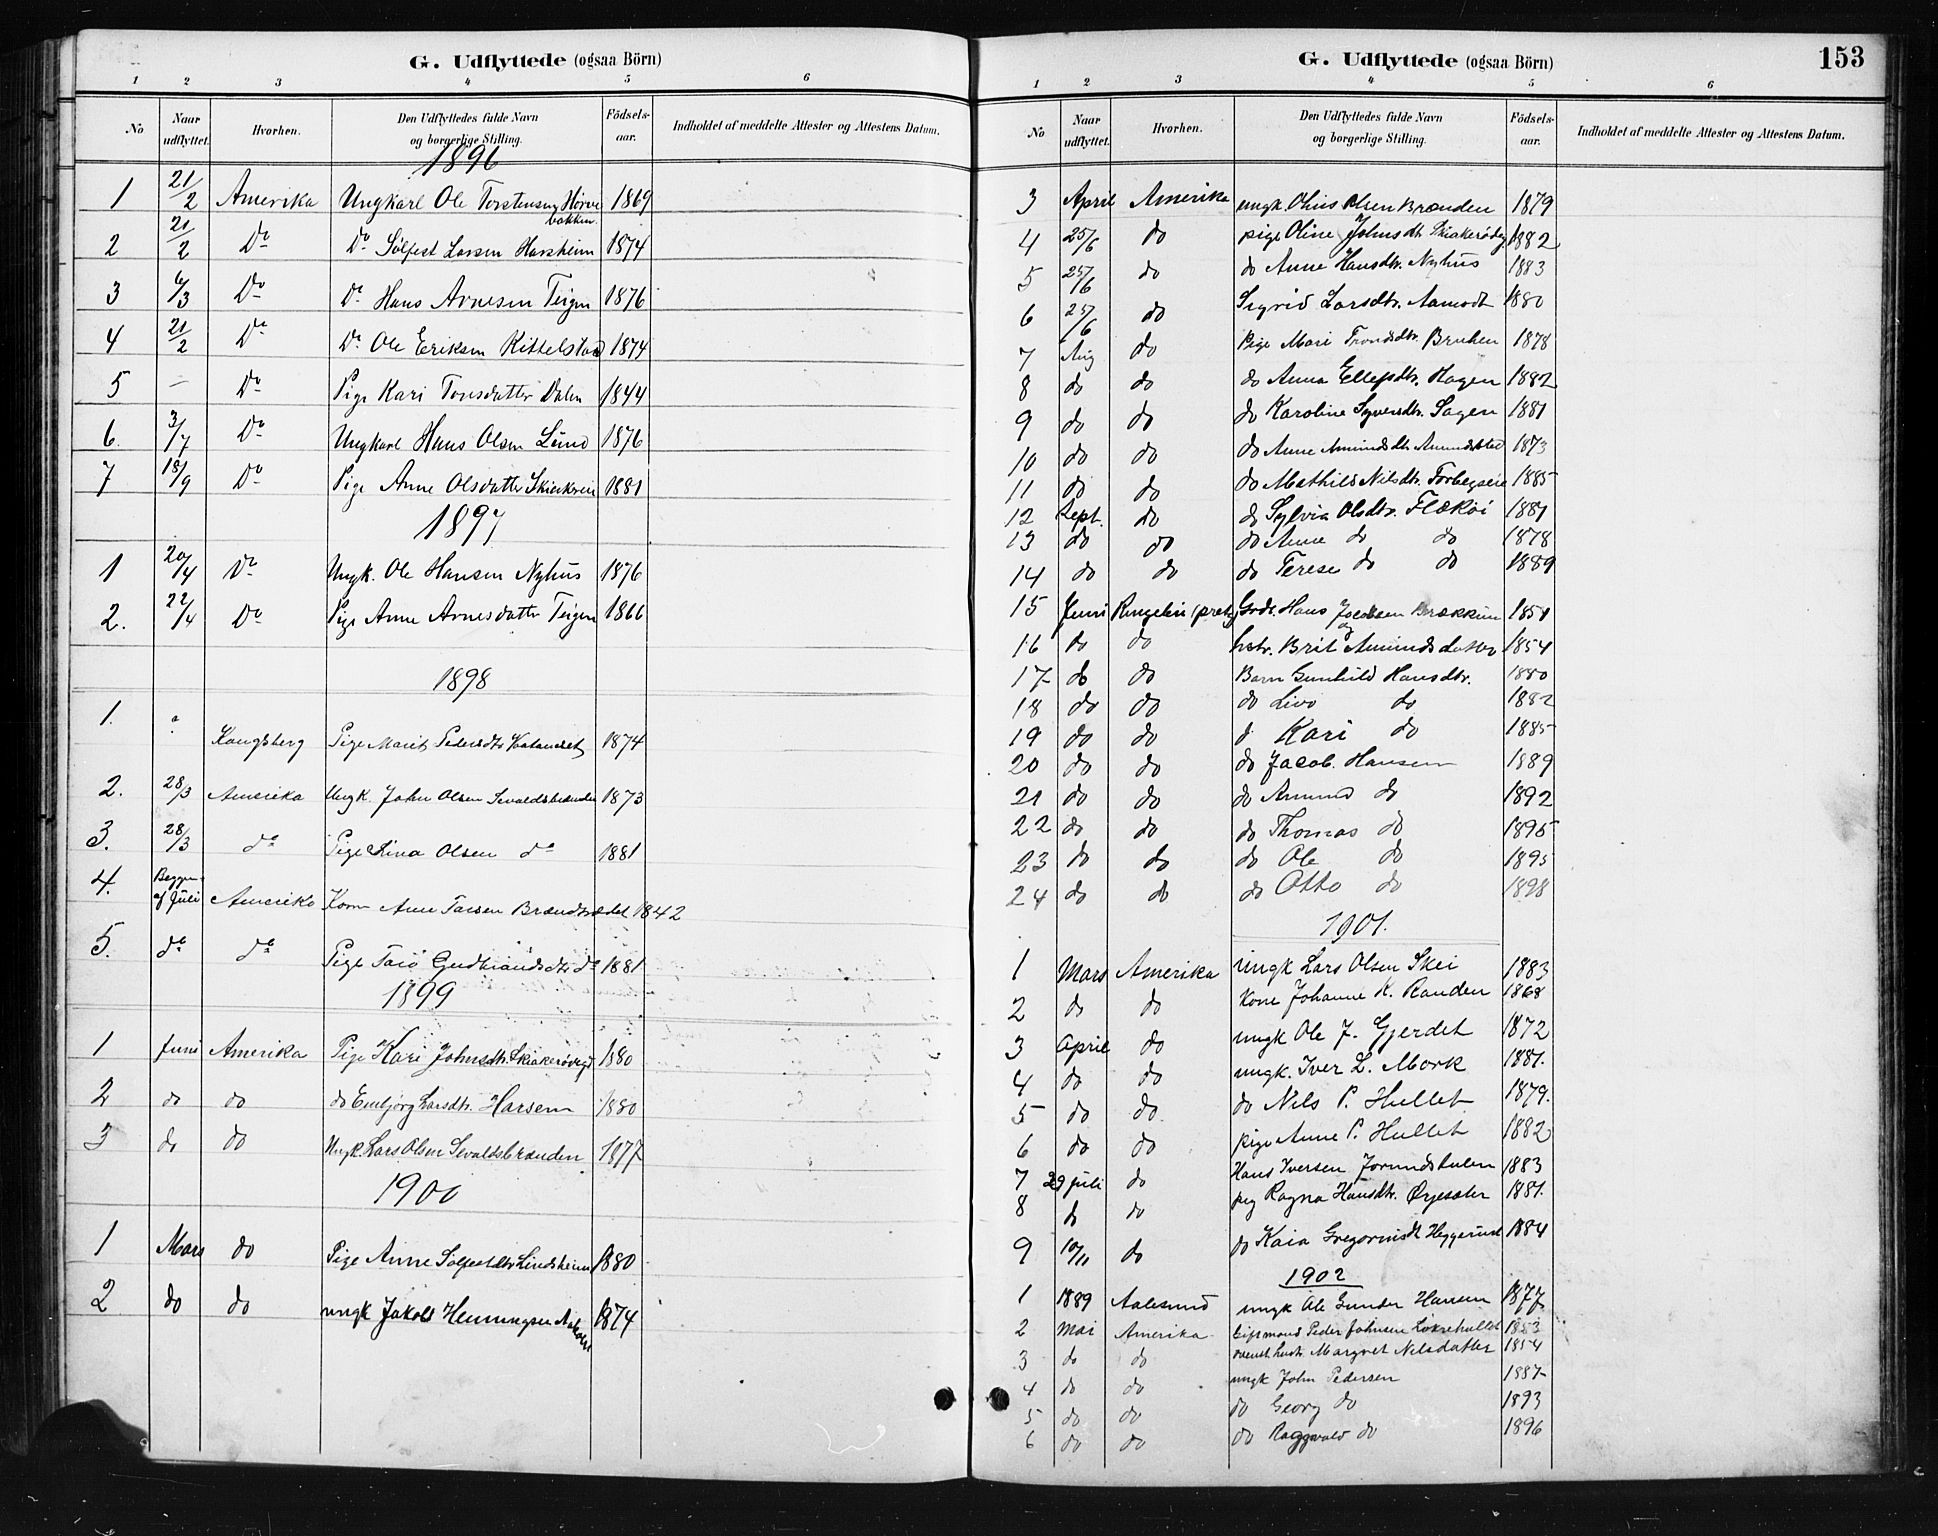 G. Udflyttede (ogsaa Börn)
1 2 3 4 5 6
No Naar udflyttet. Hvorhen. Den Udflyttedes fulde Navn og borgerlige Stilling. Födsels-aar. Indholdet af meddelte Attester og Attestens Datum.
1896
1 21/2 Amerika Ungkarl Ole Torstensen Hörve bakken 1869
2 21/2 Do Do Sölfest Larsen Harsheim 1874
3 6/3 Do Do Hans Arnesen Teigen 1876
4 21/2 Do Do Ole Eriksen Kittelstad 1874
5 – Do Pige Kari Tonsdatter Dalen 1844
6. 3/7 Do Ungkarl Hans Olsen Lund 1876
7 18/9 Do Pige Anne Olsdatter 1881
1897
1 20/4 Do Ungk. Ole Hansen Nyhus 1876
2. 22/4 Do Pige Anne Arnesdatter Teigen 1866
1898
1. Kongsberg Pige Marit Pedersdtr 1874
2. 28/3 Amerika Ungk. John Olsen Sevaldsbrænden 1873
3. 28/3 do Pige Lina Olsen do 1881
4. af Juli Amerika Kone Anne 1842
5. do do Pige Gudbrandsdtr do 1881
1899
1 Juni Amerika Pige Kari Johnsdtr. Skiakerödegd 1880
2 do do do Embjörg Larsdtr. Harsem 1880
3 do do Ungk. Lars Olsen Sevaldsbrænden 1877
1900
1 Mars do Pige Anne Sölfestdtr Lindsheim 1880
2 do do ungk Jakob Henningsen 1874
153
G. Udflyttede (ogsaa Börn)
1 2 3 4 5 6
No Naar udflyttet. Hvorhen. Den Udflyttedes fulde Navn og borgerlige Stilling. Födsels-aar. Indholdet af meddelte Attester og Attestens Datum.
3 April Amerika ungk. Olsen Brænden 1879
4 25/6 do pige Oline Johnsdtr Skiakerödeg 1882
5 25/6 do do Anne Hansdtr. Nyhus 1883
6 25/6 do Sigrid Larsdtr. Aamodt 1880
7 Aug do Pige Mari Trondsdtr. Bruhen 1878
8 do do do Anna Ellefsdtr. Hagen 1882
9 do do do Karoline Syversdtr. Sagen 1881
10 do do do Anne Amundsdtr. Amundstad 1873
11 do do do Mathild Nilsdtr. 1885
12 Sept. do do Sylvia Olsdtr. Flækøi 1881
13 do do do Anne do do 1878
14 do do do Terese do do 1889
15 Juni Ringebu Hans Jacobsen Brækken 1851
og
16 do do hstr. Brit Amundsdatter 1854
17 do do Barn Gunhild Hansdtr. 1880
18 do do do Livo do 1882
19 do do d Kari do 1885
20 do do do Jacob Hansen 1889
21 do do do Amund do 1892
22 do do do Thomas do 1895
23 do do do Ole do 1895
24 do do do Otto do 1898
1901.
1 Mars Amerika ungk Lars Olsen Skei 1883
2 do do Kone Johanne K. Randen 1868
3 April do ungk Ole J. Gjerdet 1872
4 do do ungk. Iver L. Mork 1881.
5 do do do Nils P. Hullet 1879.
6 do do pige Anne P. Hullet 1882
7 29 juli do Hans Iversen 1883
8 do do pig Ragna Hansdtr. Øyesæter 1881.
9 10/11 do do Kaia Heggerust 1884
1902
1 1889 Aalesund ungk Ole Gunder Hansen 1877
2 Mai Amerika Peder Johnsen 1853
3 do do hustr. Margret Nilsdatter 1854
4 do do ungk John Pedersen 1887
5 do do do Georg do 1893
6 do do do Raggvald do 1896